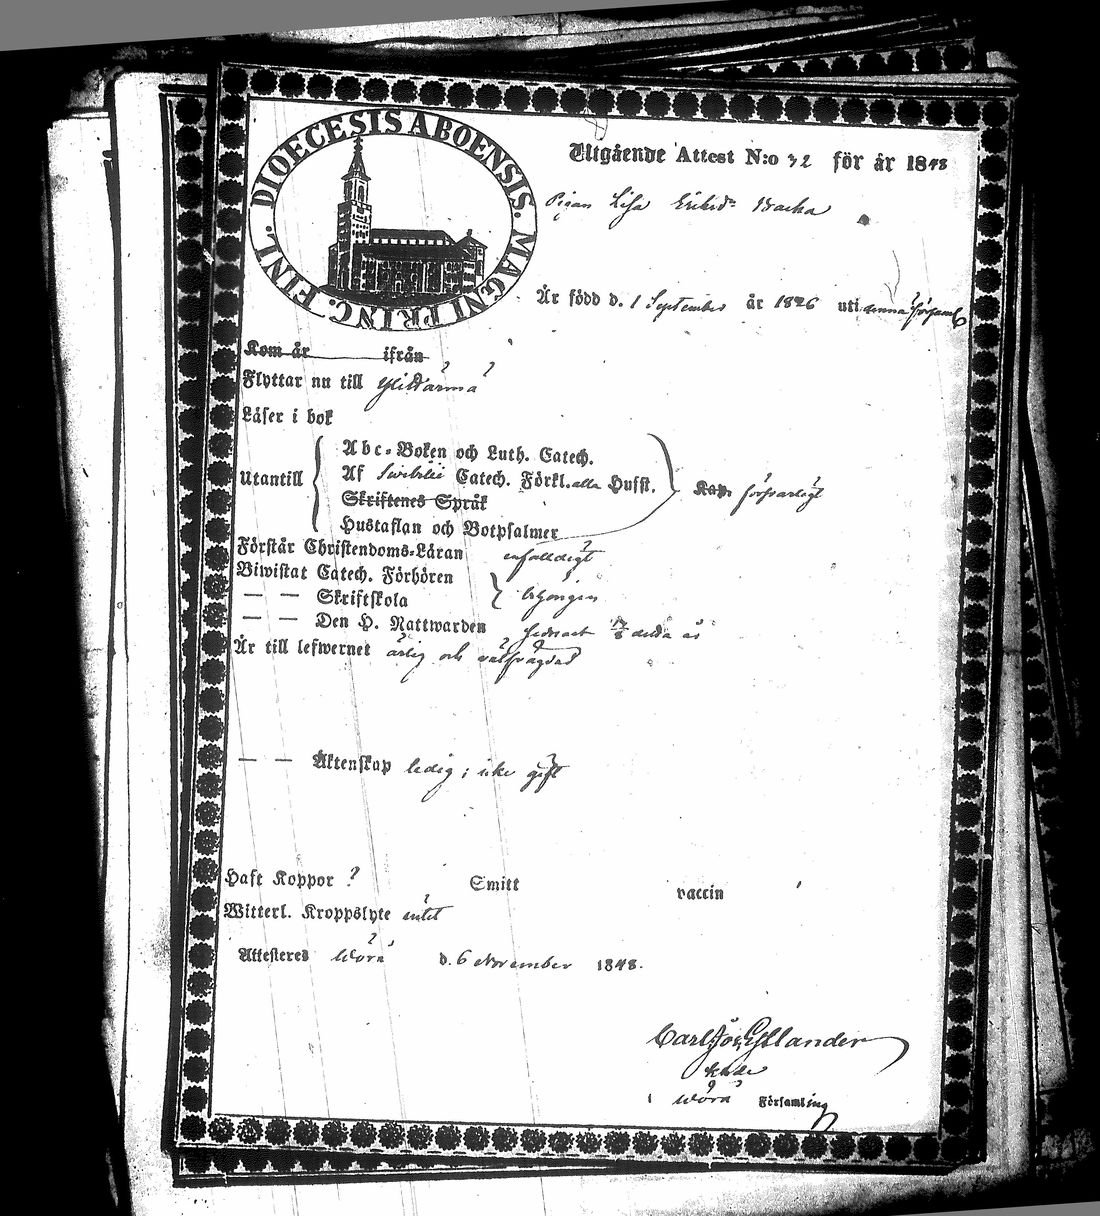 DIOECESIS ABOENSIS. MAGNI PRINC. FINL.
Utgående Attest N:o 32 för år 1848
Pigan Lisa Eriksdr Backa
Är född d. 1 September år 1826 uti denna församl
Kom år ifrån
Flyttar nu till Ylihärmä
Läser i bok
Utantill
Abc-Boken och Luth. Catech.
Af Swebilii Catech. Förkl. alla Husst.
Skriftenes Språk
Hustaflan och Botpsalmer
Kap. försvarligt
Förstår Christendoms-Läran enfalldigt
Biwistat Catech. Förhören
— — Skriftskola
— — Den H. Nattwarden senast detta år
Är till lefwernet ärlig och välfrägdad
— — Äktenskap ledig; icke gift
Haft Koppor ? Smitt vaccin
Witterl. Kroppslyte intet
Attesteres Wörå d. 6 November 1848.
Carl Joh. Gyllander
i Wörå Församling